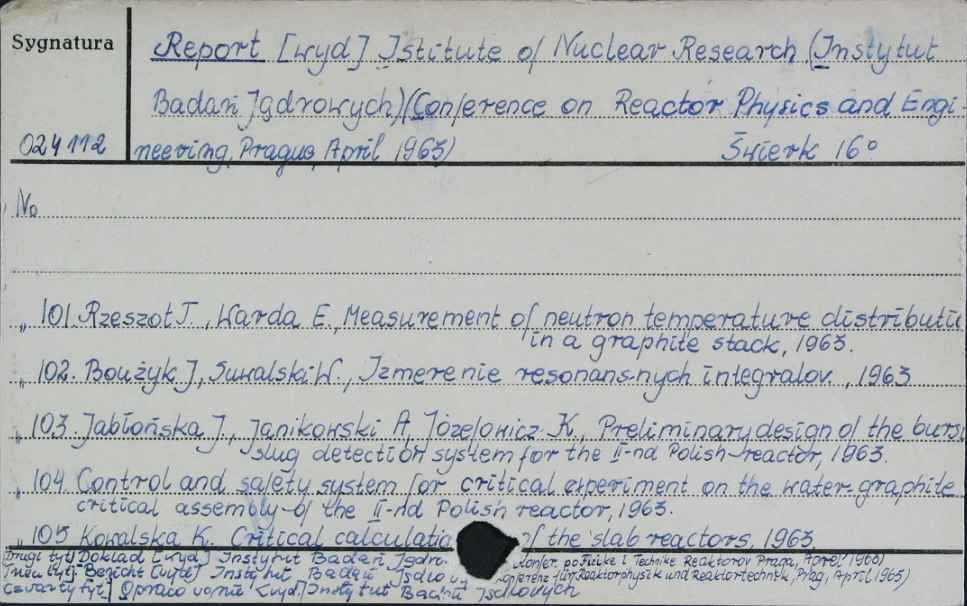 Sygnatura
Report [wyd] Istitute of Nuclear Research (Instytut
Badań Jądrowych)(Conference on Reactor Physics and Engi-
024112 neering, Prague, April 1963) Świerk 16°
No
„ 101. Rzeszot J., Warda E., Measurement of neutron temperature distributi
in a graphite stack, 1963.
„ 102. Boużyk J., Suwalski W., Izmerenie resonansnych integralov., 1963
„ 103. Jabłońska J., Janikowski A, Józefowicz K., Preliminary design of the burs
slug detection system for the II-nd Polish reactor, 1963.
„ 104. Control and safety system for critical experiment on the water-graphite
critical assembly of the II-nd Polish reactor, 1963.
„ 105 Kowalska K. Critical calculatio of the slab reactors, 1963
Drugi tyt] Doklad [wyd] Instytut Badań Jądro konfer. po Fizike i Technike Reaktorov Praga, Aprel' 1963)
Trzeci tyt]. Bericht [wyd] Instytut Badań Jądrowy konferenz für Reaktorphysik und Reaktortechnik, Prag, April 1963)
Czwarty tyt] Instytut Badań Jądrowych